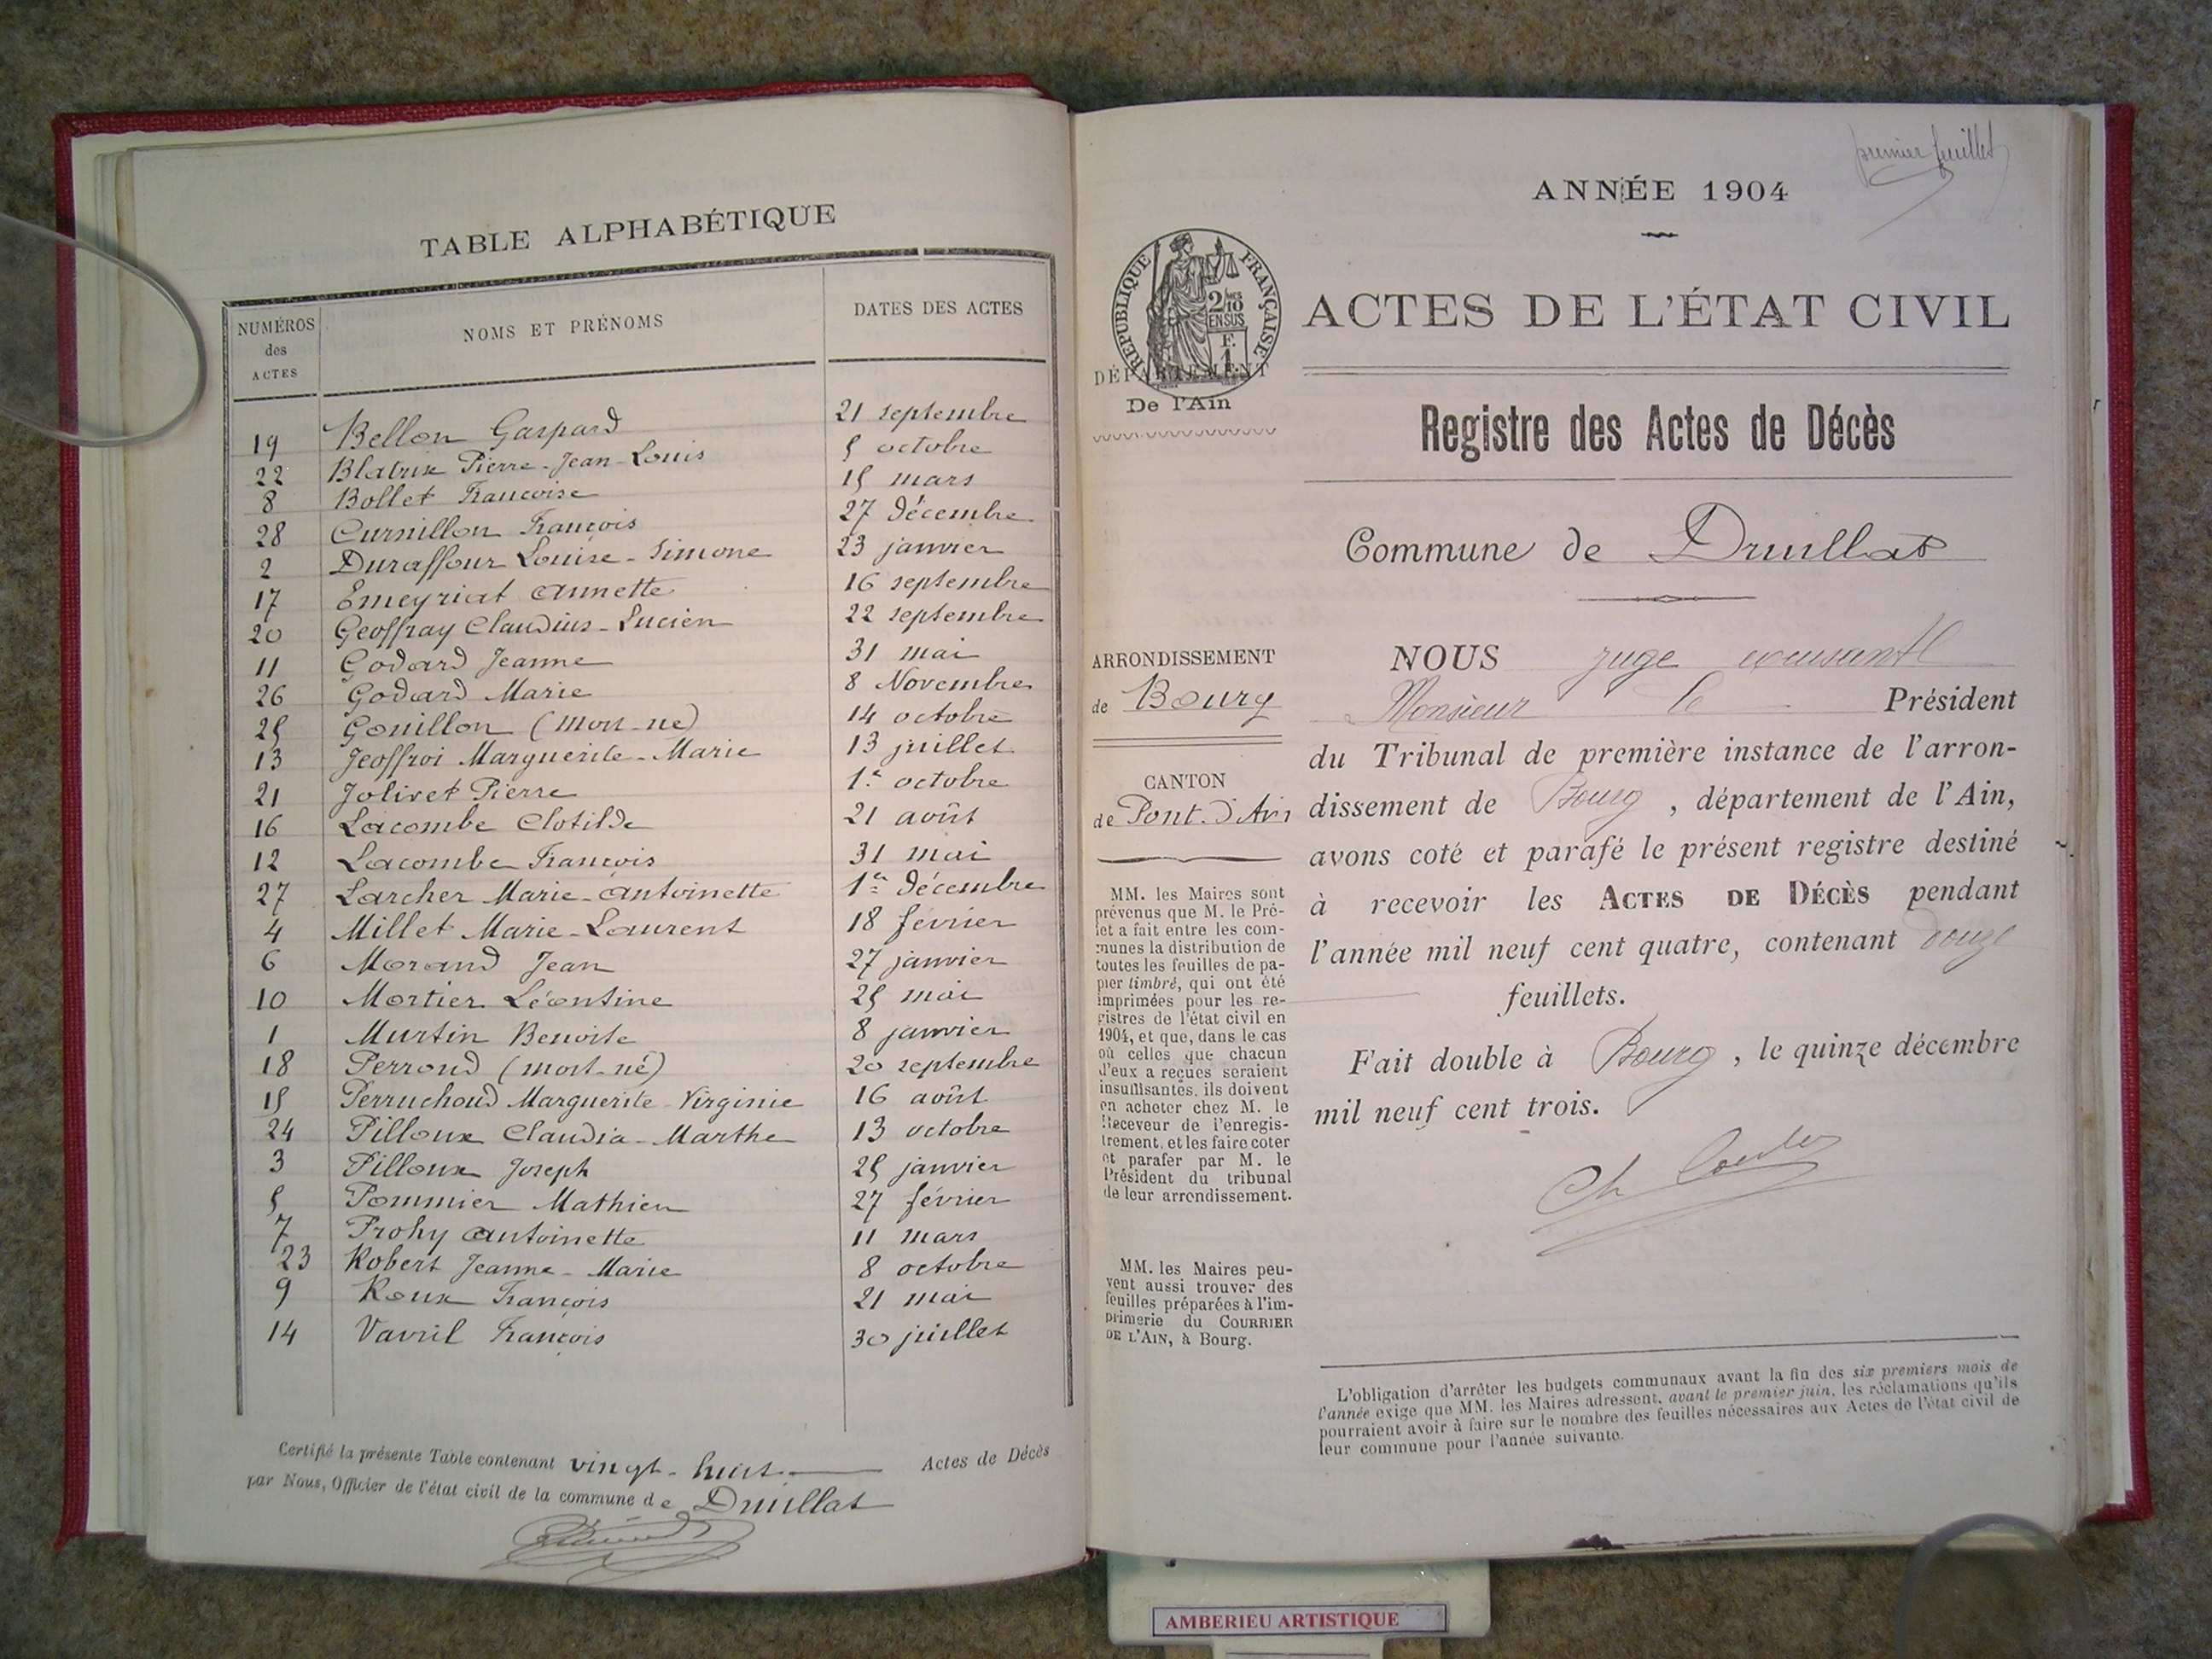 TABLE ALPHABÉTIQUE
NUMÉROS des ACTES
NOMS ET PRÉNOMS
DATES DES ACTES
19 Bellon Gaspard 21 septembre
22 Blatrix Pierre-Jean-Louis 5 octobre
8 Bollet Francoise 15 mars
28 Curnillon François 27 décembre
2 Duraffour Louise-Simone 23 janvier
17 Emeyriat Annette 16 septembre
20 Geoffray Claudius-Lucien 22 septembre
11 Godard Jeanne 31 mai
26 Godard Marie 8 Novembre
25 Gouillon (mort-né) 14 octobre
13 Jeoffroi Marguerite-Marie 13 juillet
21 Jolivet Pierre 1er octobre
16 Lacombe Clotilde 21 août
12 Lacombe François 31 mai
27 Larcher Marie-Antoinette 1er décembre
4 Millet Marie-Laurent 18 février
6 Morand Jean 27 janvier
10 Mortier Léontine 25 mai
1 Murtin Benoite 8 janvier
18 Perroud (mort-né) 20 septembre
15 Perruchoud Marguerite-Virginie 16 août
24 Pilloux Claudia-Marthe 13 octobre
3 Pilloux Joseph 25 janvier
5 Pommier Mathieu 27 février
7 Prohy Antoinette 11 mars
23 Robert Jeanne-Marie 8 octobre
9 Roux François 21 mai
14 Vavril François 30 juillet
Certifié la présente Table contenant vingt-huit Actes de Décès
par Nous, Officier de l'état civil de la commune de Druillat
premier feuillet
ANNÉE 1904
RÉPUBLIQUE FRANÇAISE
2 10
EN SUS
F.
1.
DÉPARTEMENT
De l'Ain
ACTES DE L'ÉTAT CIVIL
Registre des Actes de Décès
Commune de Druillat
ARRONDISSEMENT
de Bourg
CANTON
de Pont-d'Ain
MM. les Maires sont
prévenus que M. le Pré-
fet a fait entre les com-
munes la distribution de
toutes les feuilles de pa-
pier timbré, qui ont été
imprimées pour les re-
gistres de l'état civil en
1904, et que, dans le cas
où celles que chacun
d'eux a reçues seraient
insuffisantes, ils doivent
en acheter chez M. le
Receveur de l'enregis-
trement, et les faire coter
et parafer par M. le
Président du tribunal
de leur arrondissement.
MM. les Maires peu-
vent aussi trouver des
feuilles préparées à l'im-
primerie du COURRIER
DE L'AIN, à Bourg.
NOUS juge
Monsieur le Président
du Tribunal de première instance de l'arron-
dissement de Bourg, département de l'Ain,
avons coté et parafé le présent registre destiné
à recevoir les ACTES DE DÉCÈS pendant
l'année mil neuf cent quatre, contenant douze
feuillets.
Fait double à Bourg, le quinze décembre
mil neuf cent trois.
L'obligation d'arrêter les budgets communaux avant la fin des six premiers mois de
l'année exige que MM. les Maires adressent, avant le premier juin, les réclamations qu'ils
pourraient avoir à faire sur le nombre des feuilles nécessaires aux Actes de l'état civil de
leur commune pour l'année suivante.
AMBERIEU ARTISTIQUE